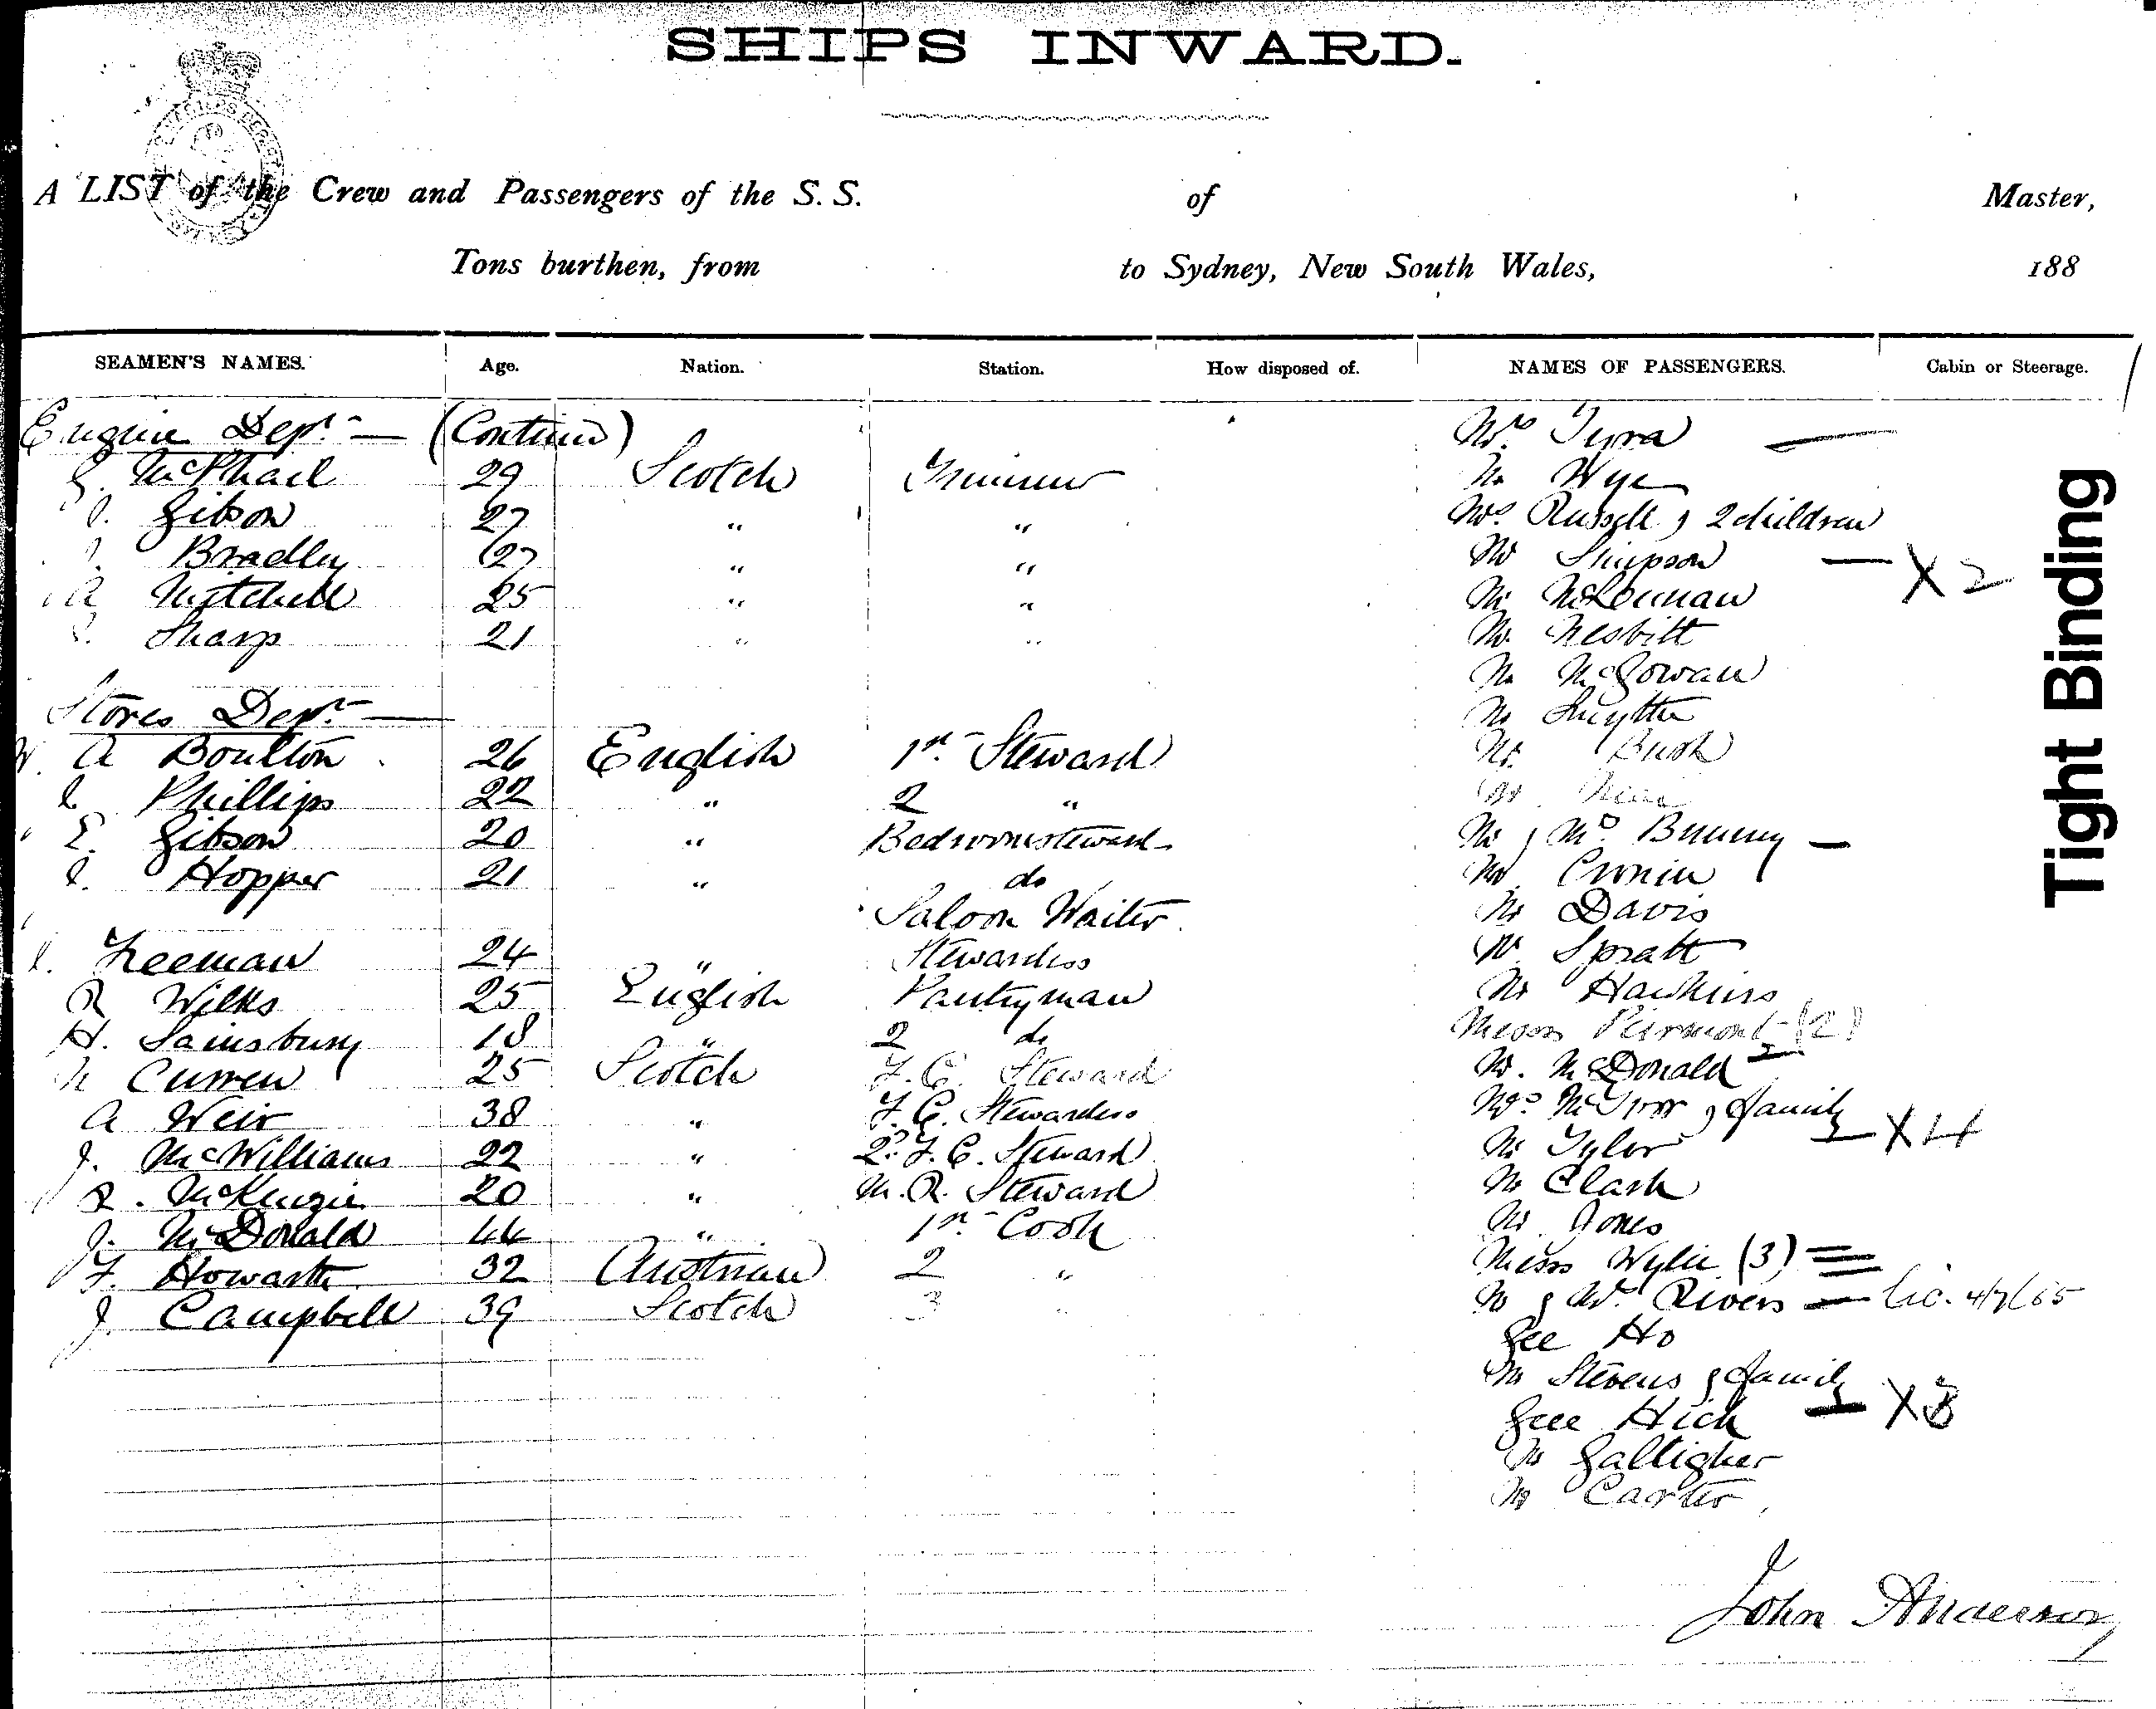 SHIPS INWARD.
A LIST of the Crew and Passengers of the S. S. of Master,
Tons burthen, from to Sydney, New South Wales, 188
SEAMEN'S NAMES. Age. Nation. Station. How disposed of. NAMES OF PASSENGERS. Cabin or Steerage.
Engine Dept. — (Continued) Mrs
McPhail 29 Scotch Trimmer Mr Wye
Gibson 27 " " Mrs Russell & 2 children
Bradley 27 " " Mr Simpson — X2
A Mitchell 25 " " Mr McLennan
Sharp 21 " " Mr Nesbitt
Mr McGowan
Stores Dept. — Mr Smythe
W. A Boulton 26 English 1st Steward Mr Bush
Phillips 22 " 2 " Mr
E. Gibson 20 " Bedroomsteward Mr & Mrs Bunny —
Hopper 21 " do Mr Cronin
Saloon Waiter Mr Davis
Freeman 24 " Stewardess Mr Spratt
R Wilks 25 English Pantryman Mr Hawkins
H. Sainsbury 18 " 2 do Messrs Piermont (2)
Curren 25 Scotch F. C. Steward Mr. McDonald
A Weir 38 " F. C. Stewardess Mrs & family X4
J. McWilliams 22 " 2nd F. C. Steward Mr Tyler
R. McKenzie 20 " M. R. Steward Mr Clark
J. McDonald 44 " 1st Cook Mr Jones
F. Howarth 32 Austrian 2 " Messrs Wylie (3)
J. Campbell 39 Scotch 3 " Mr & Mrs Rivers — Lic. 4/7/65
Gee Ho
Mr Stevens & family
Gee Hick — X3
Mr Galligher
Mr Carter
John Anderson
Tight Binding